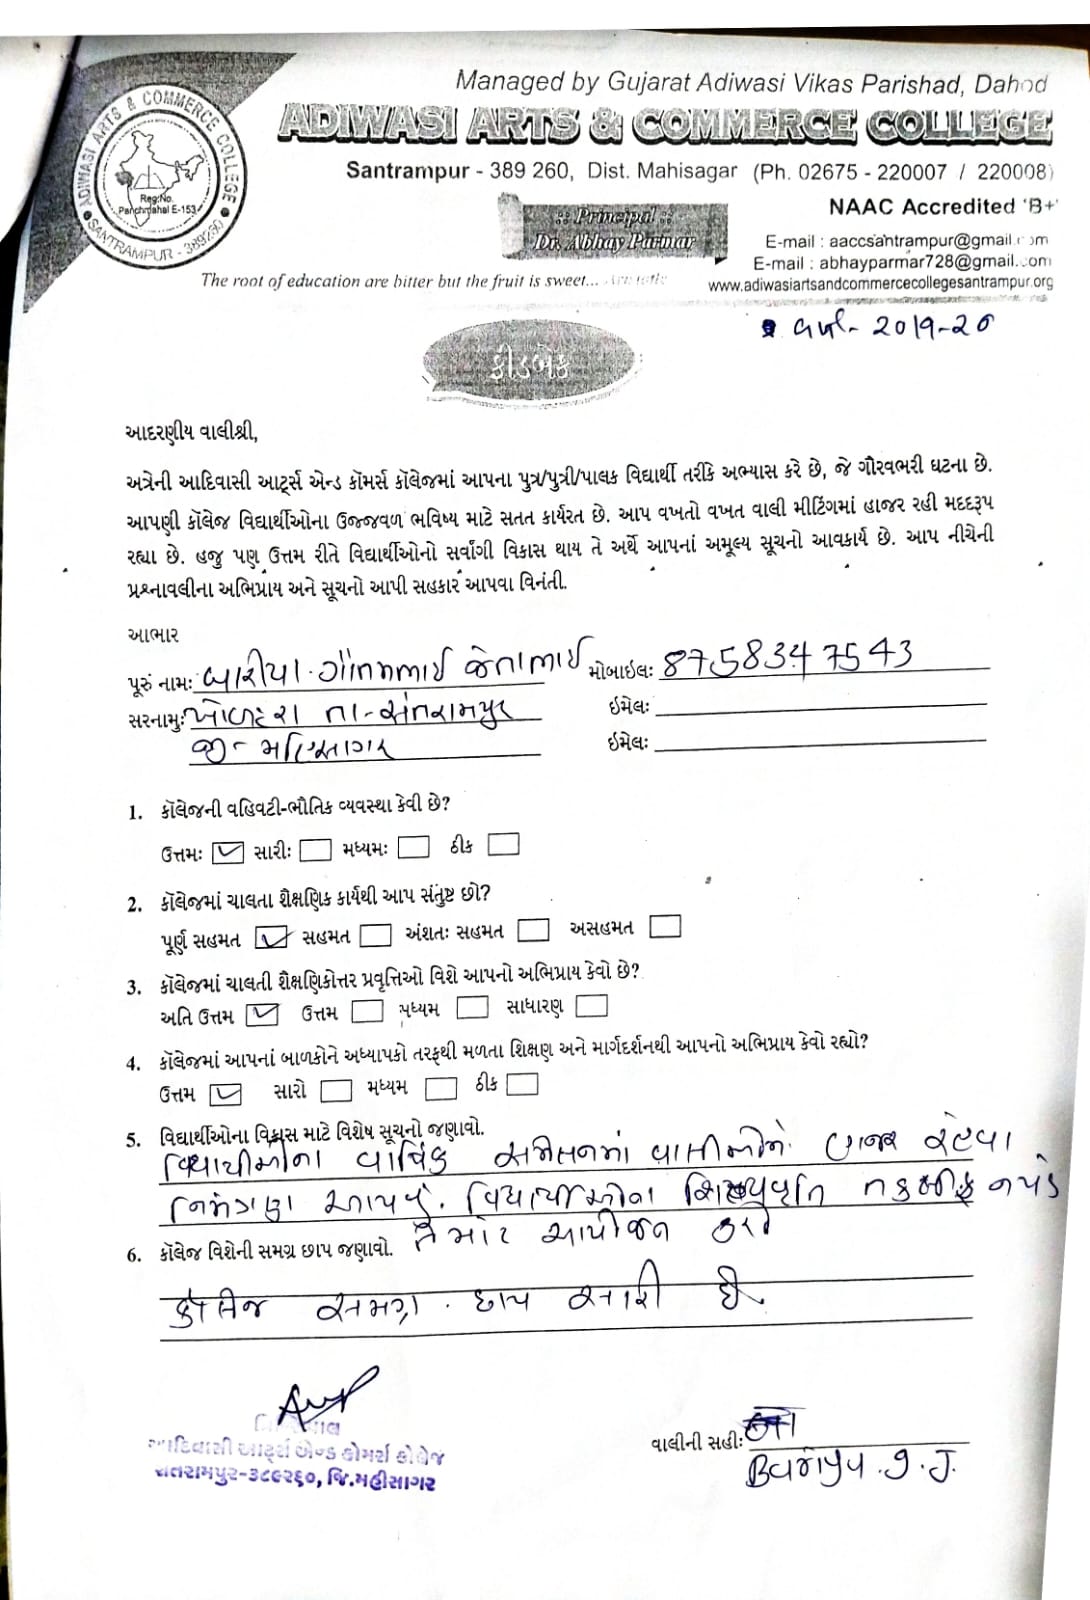 Managed by Gujarat Adiwasi Vikas Parishad, Dahod
ADIWASI ARTS & COMMERCE COLLEGE
Santrampur - 389 260, Dist. Mahisagar (Ph. 02675 - 220007 / 220008)
ADIWASI ARTS & COMMERCE COLLEGE
Reg.No.
Panchmahal E-153
SANTRAMPUR - 389260
NAAC Accredited 'B+'
:: Principal ::
Dr. Abhay Parmar
E-mail : aaccsantrampur@gmail.com
E-mail : abhayparmar728@gmail.com
www.adiwasiartsandcommercecollegesantrampur.org
The root of education are bitter but the fruit is sweet...
વર્ષ- 2019-20
ફીડબેક
આદરણીય વાલીશ્રી,
અત્રેની આદિવાસી આર્ટ્સ એન્ડ કૉમર્સ કૉલેજમાં આપના પુત્ર/પુત્રી/પાલક વિદ્યાર્થી તરીકે અભ્યાસ કરે છે, જે ગૌરવભરી ઘટના છે.
આપણી કૉલેજ વિદ્યાર્થીઓના ઉજ્જવળ ભવિષ્ય માટે સતત કાર્યરત છે. આપ વખતો વખત વાલી મીટિંગમાં હાજર રહી મદદરૂપ
રહ્યા છે. હજુ પણ ઉત્તમ રીતે વિદ્યાર્થીઓનો સર્વાંગી વિકાસ થાય તે અર્થે આપનાં અમૂલ્ય સૂચનો આવકાર્ય છે. આપ નીચેની
પ્રશ્નાવલીના અભિપ્રાય અને સૂચનો આપી સહકાર આપવા વિનંતી.
આભાર
પૂરું નામઃ બારીયા ગૌતમભાઈ જેતાભાઈ મોબાઇલઃ 8758347543
સરનામુઃ તા-સંતરામપુર ઇમેલઃ
જી- મહિસાગર ઇમેલઃ
1. કૉલેજની વહિવટી-ભૌતિક વ્યવસ્થા કેવી છે?
ઉત્તમઃ સારીઃ મધ્યમઃ ઠીક
2. કૉલેજમાં ચાલતા શૈક્ષણિક કાર્યથી આપ સંતુષ્ટ છો?
પૂર્ણ સહમત સહમત અંશતઃ સહમત અસહમત
3. કૉલેજમાં ચાલતી શૈક્ષણિકોત્તર પ્રવૃત્તિઓ વિશે આપનો અભિપ્રાય કેવો છે?
અતિ ઉત્તમ ઉત્તમ મધ્યમ સાધારણ
4. કૉલેજમાં આપનાં બાળકોને અધ્યાપકો તરફથી મળતા શિક્ષણ અને માર્ગદર્શનથી આપનો અભિપ્રાય કેવો રહ્યો?
ઉત્તમ સારો મધ્યમ ઠીક
5. વિદ્યાર્થીઓના વિકાસ માટે વિશેષ સૂચનો જણાવો.
વિદ્યાર્થીઓના વાર્ષિક સંમેલનમાં વાલીઓને હાજર રહેવા
નિમંત્રણ આપવું. વિદ્યાર્થીઓના શિષ્યવૃતિ તકલીફ ન પડે
તે માટે આયોજન કરો
6. કૉલેજ વિશેની સમગ્ર છાપ જણાવો.
કોલેજ સમગ્ર છાપ સારી છે.
આદિવાસી આર્ટ્સ એન્ડ કોમર્સ કોલેજ
સંતરામપુર-૩૮૯૨૬૦, જિ.મહીસાગર
વાલીની સહીઃ
Bariya.G.J.